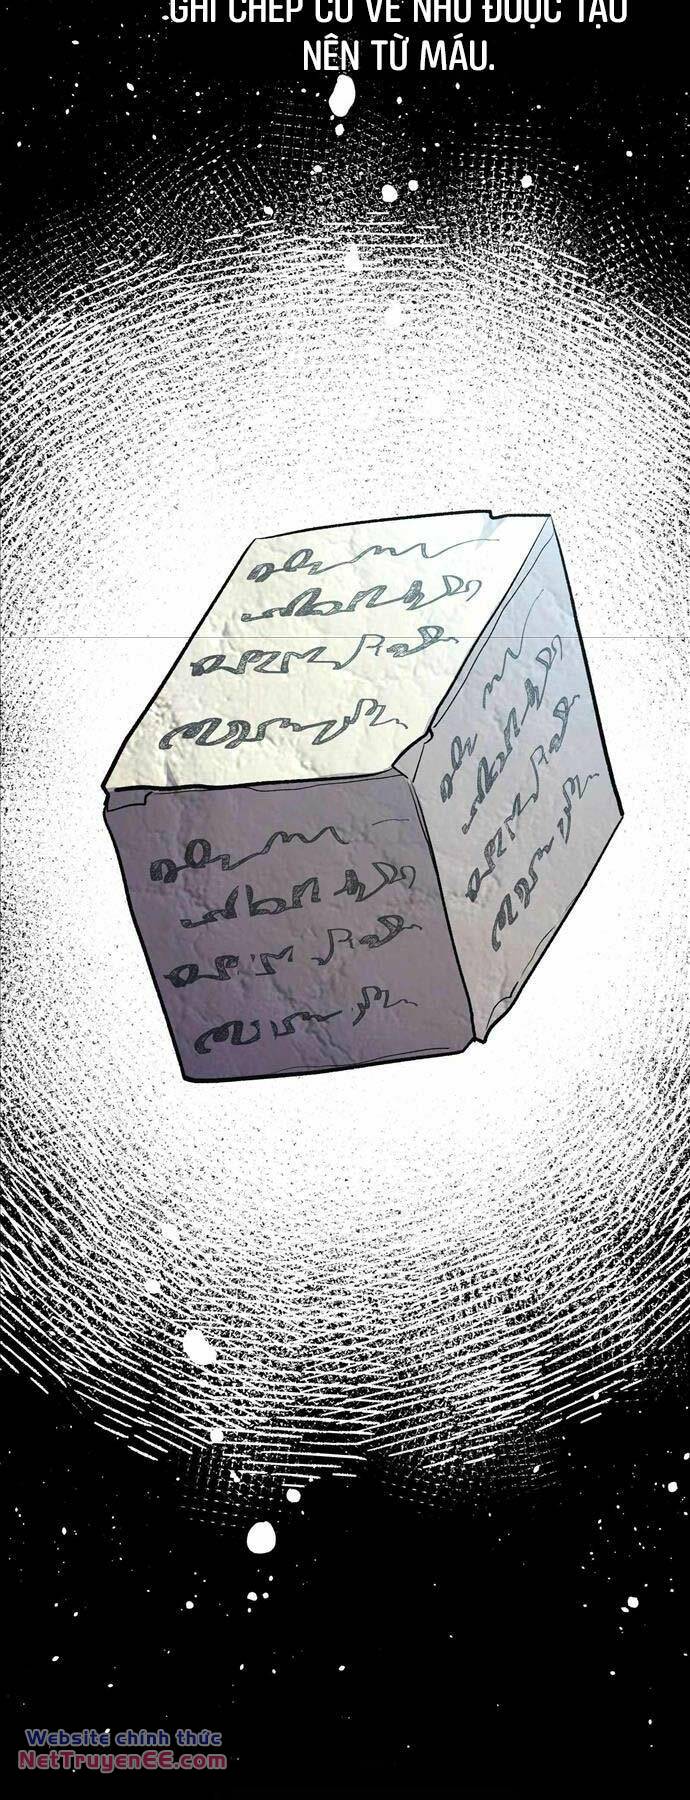 GHI CHÉP CÓ VẺ NHƯ ĐƯỢC TẠO
NÊN TỪ MÁU.
Website chính thức
NetTruyenEE.com